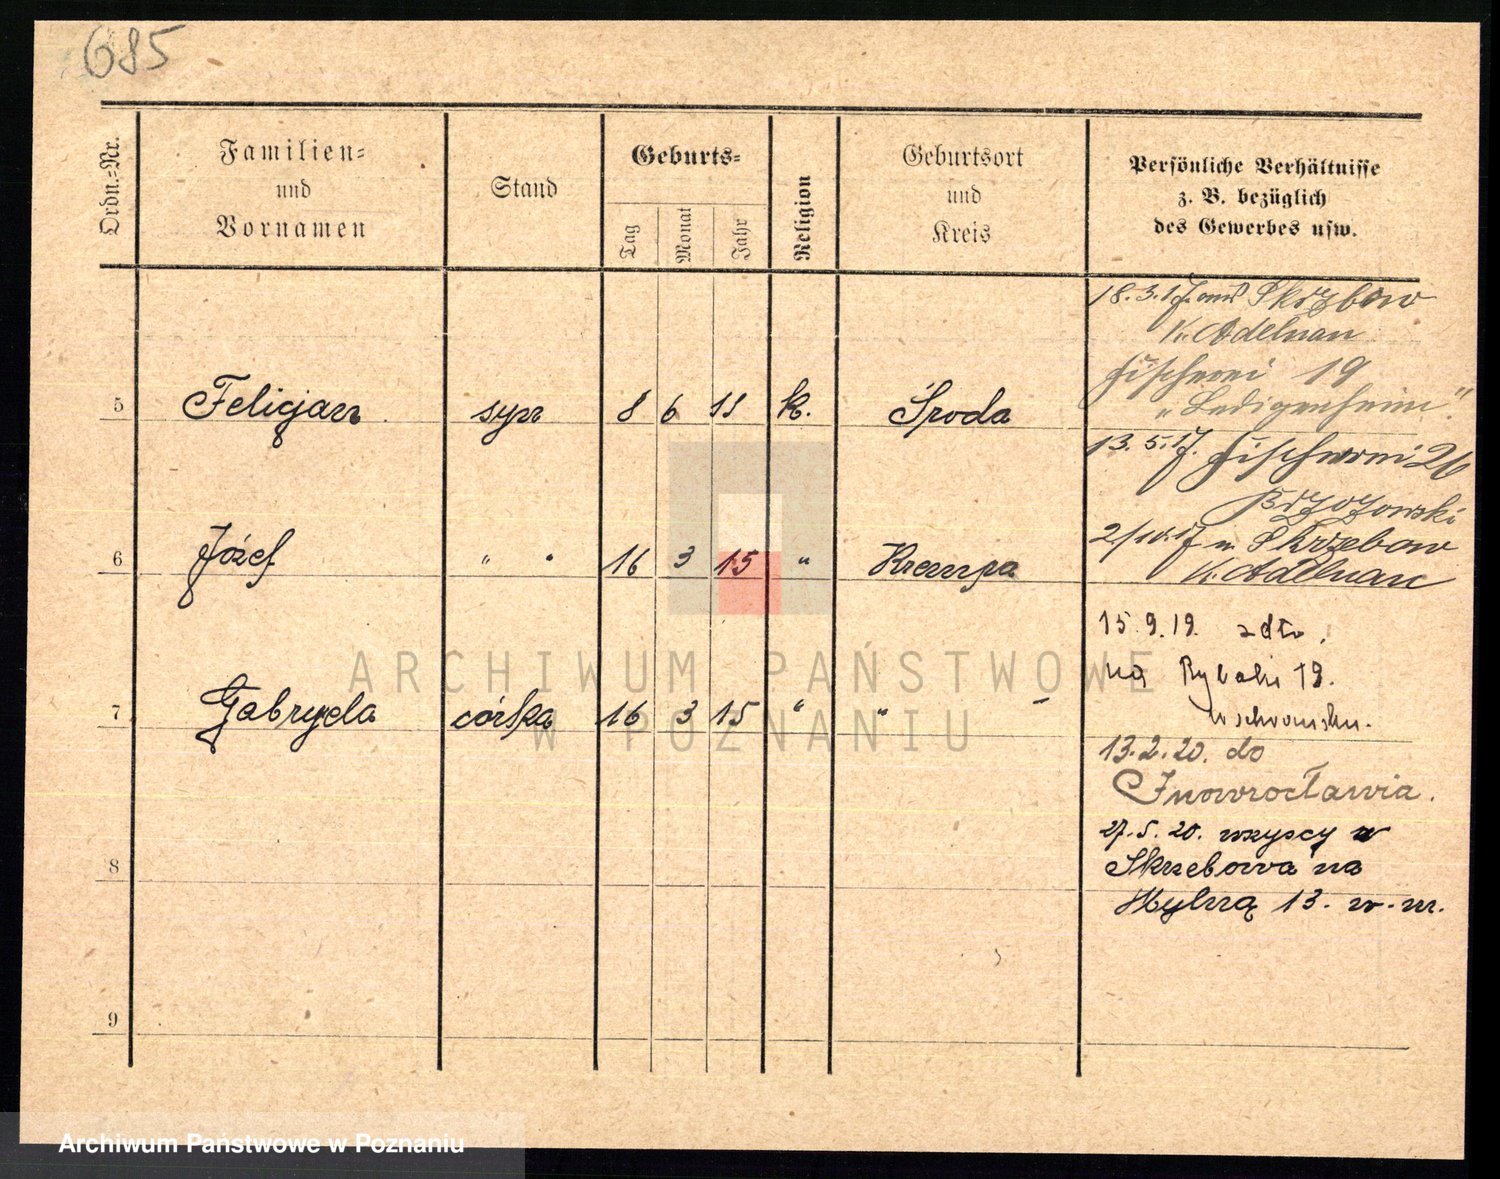 685
Ordn.-Nr.
Familien-
und
Vornamen
Stand
Geburts-
Tag
Monat
Jahr
Religion
Geburtsort
und
Kreis
Persönliche Verhältnisse
z. B. bezüglich
des Gewerbes usw.
18.3.17. aus Skrzbow
K. Adelnau
Fischerei 19
"Ledigenheim".
5 Felicjan syn 8 6 11 k. Środa
13.5.17. Fischerei 26
Brzozowski
6 Józef " " 16 3 15 " Krempa
2/10.17 n. Skrzebow
K. Adelnau
15.9.19. z dto.
na Rybaki 19.
7 Gabryela córka 16 3 15 " " "
13.2.20. do
Inowrocławia.
27.5.20. wszyscy z
Skrzebowa na
8
Hylną 13. w. m.
9
ARCHIWUM PAŃSTWOWE
W POZNANIU
Archiwum Państwowe w Poznaniu